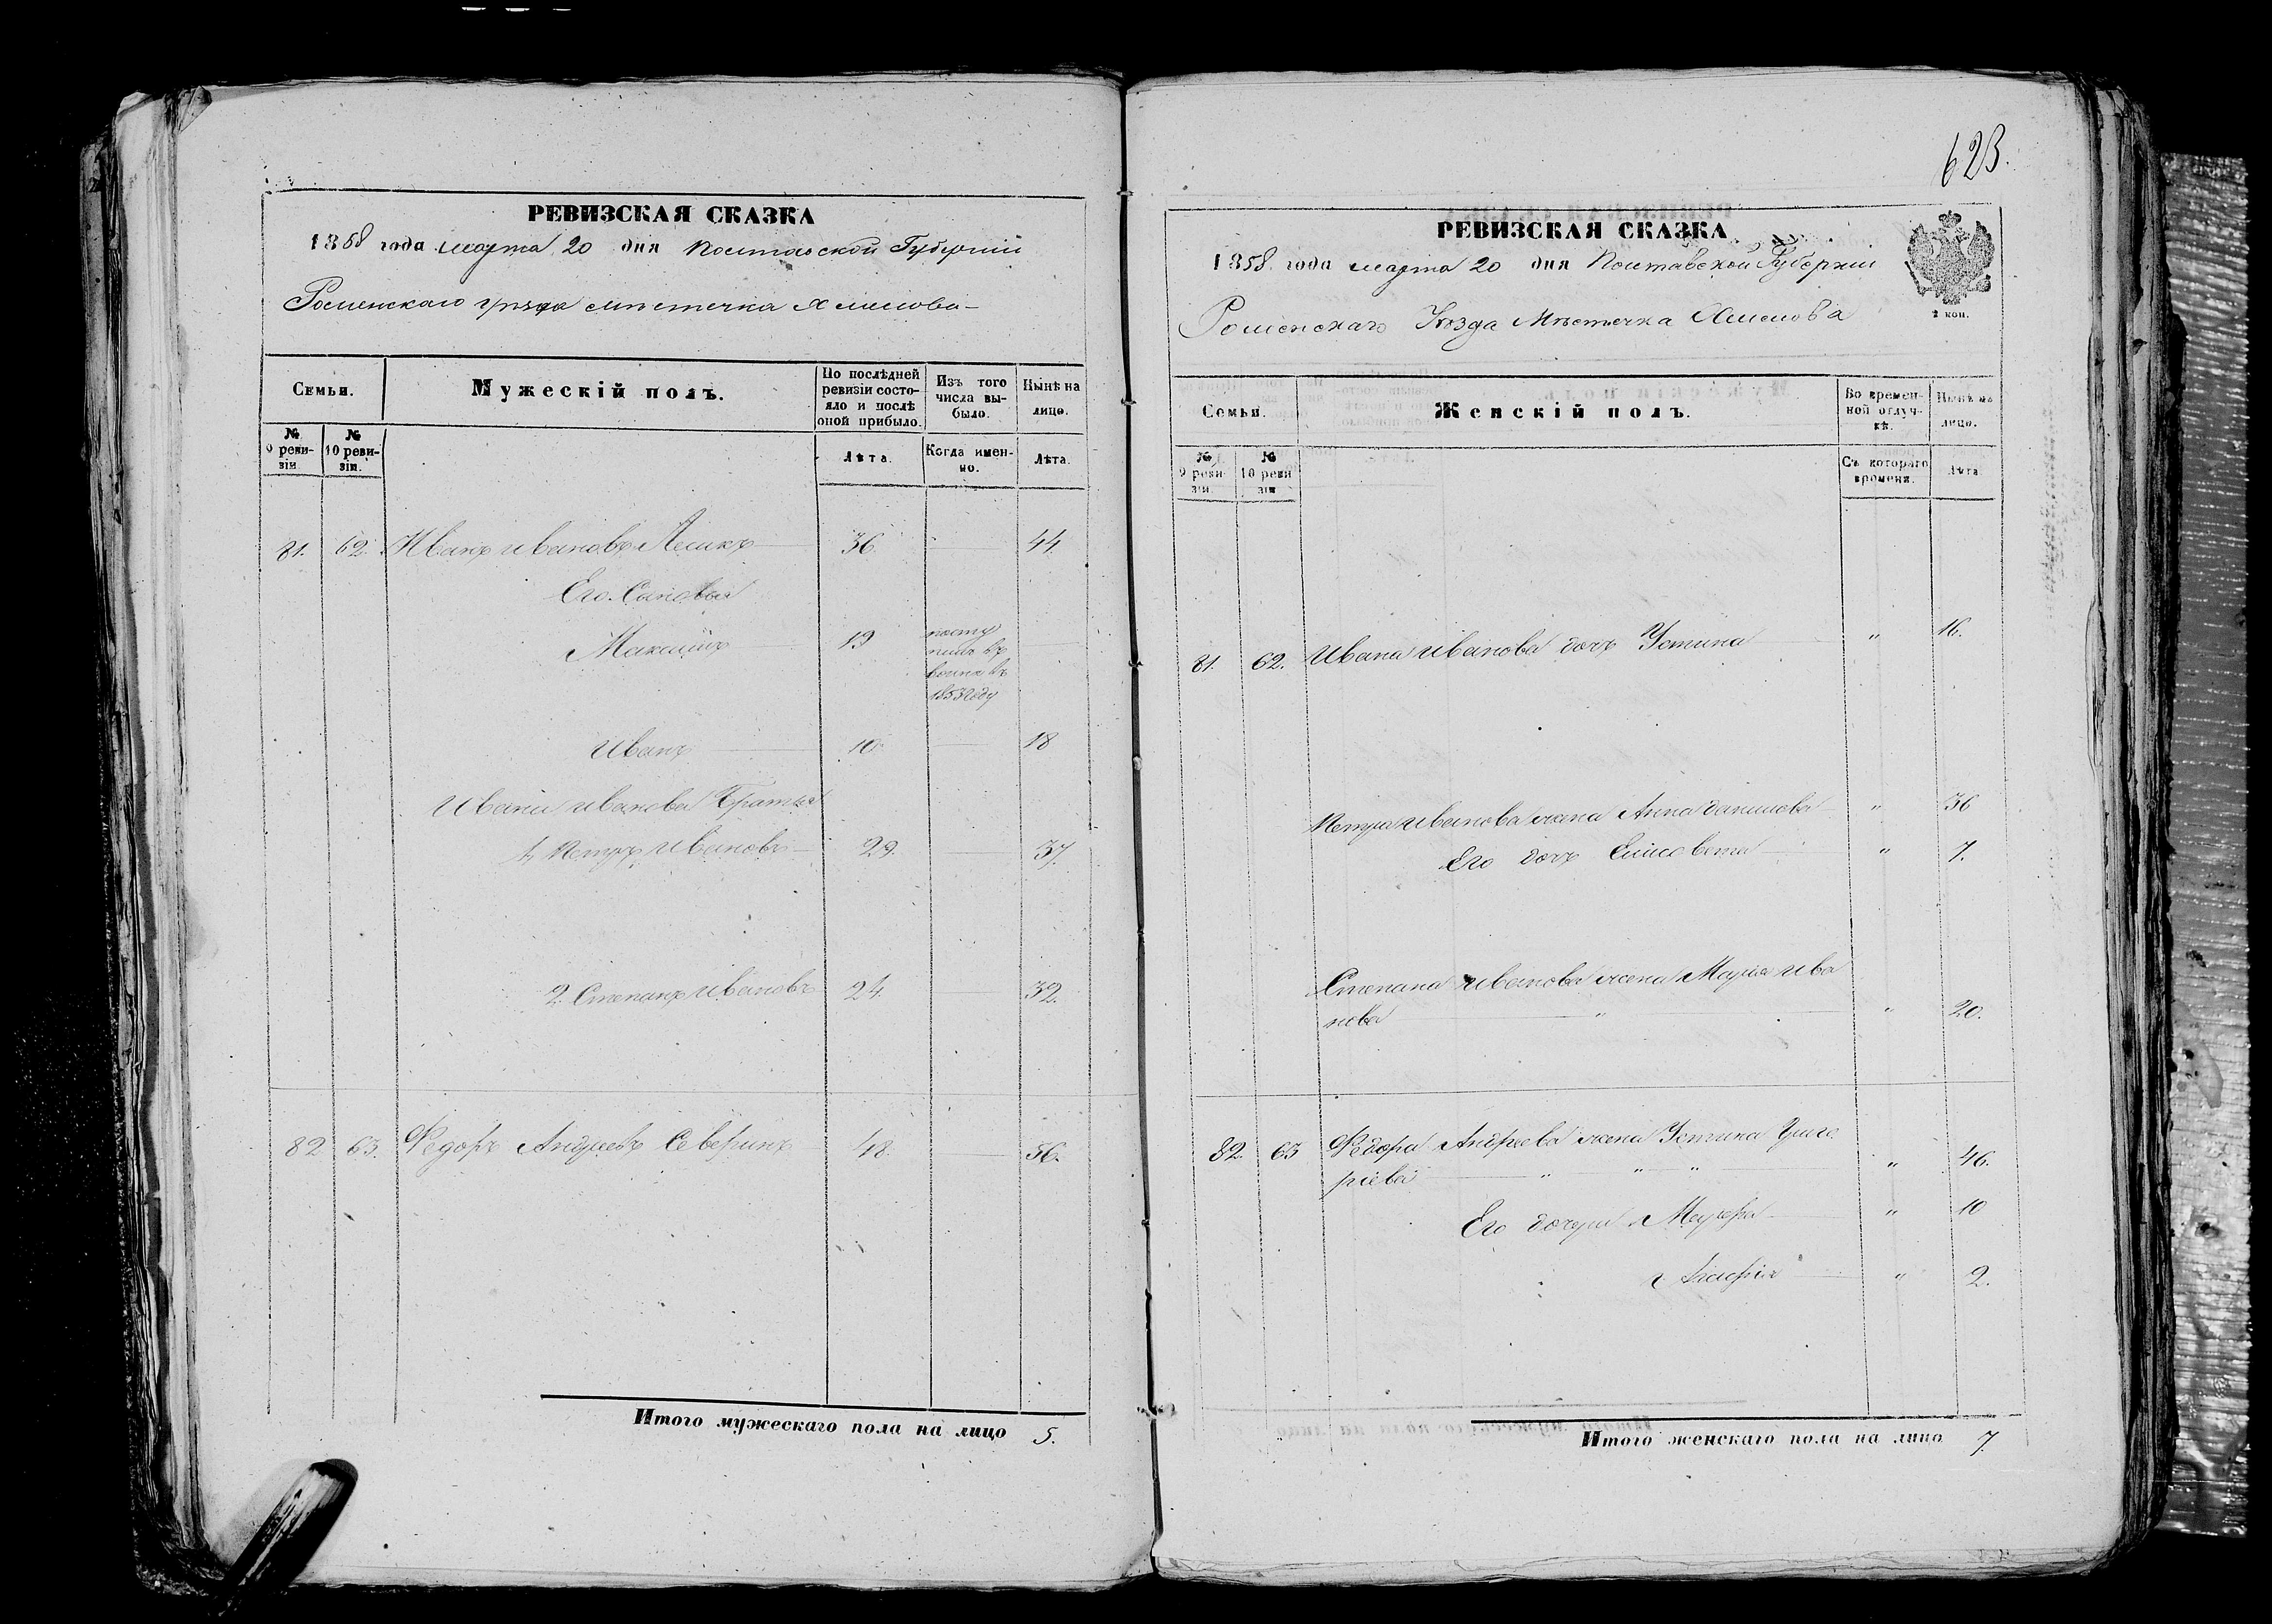 РЕВИЗСКАЯ СКАЗКА
1858 года марта 20 дня Полтавской Губернии
Роменскаго уѣзда мѣстечка Хмелова
Семьи.
Мужескій полъ.
По послѣдней ревизіи состояло и послѣ оной прибыло.
Изъ того числа выбыло.
Нынѣ на лицо.
№ 9 ревизіи
№ 10 ревизіи.
Лѣта.
Когда именно.
Лѣта.
81. 62. Иванъ Ивановъ 36. 44.
Его Сыновья
Максимъ 19 посту
пилъ въ
воина въ
1853 году
Иванъ 10 18
Ивана Иванова Братья
1, Петръ Ивановъ 29. 37.
2. Степанъ Ивановъ 24. 32.
82 63. Федоръ Андреевъ Северинъ 48. 56.
Итого мужескаго пола на лицо 5.
623.
РЕВИЗСКАЯ СКАЗКА
1858 года марта 20 дня Полтавской Губерніи
Роменскаго Уѣзда Мѣстечка Хмелова
2 коп.
Семьи.
Женскій полъ.
Во временной отлучкѣ.
Нынѣ на лицо.
№ 9 ревизіи.
№ 10 ревизіи
Съ котораго времени.
Лѣта
81. 62. Ивана Иванова дочь Устина " 16.
Петра Иванова жена Анна Данилова " 36
Его дочь Елисовета " 7.
Степана Иванова жена Марія Ива
нова " " 20.
82. 63 Федора Андреева жена Устина Григо
ріева " " " " 46.
Его дочери " 10
" 2.
Итого женскаго пола на лицо 7.